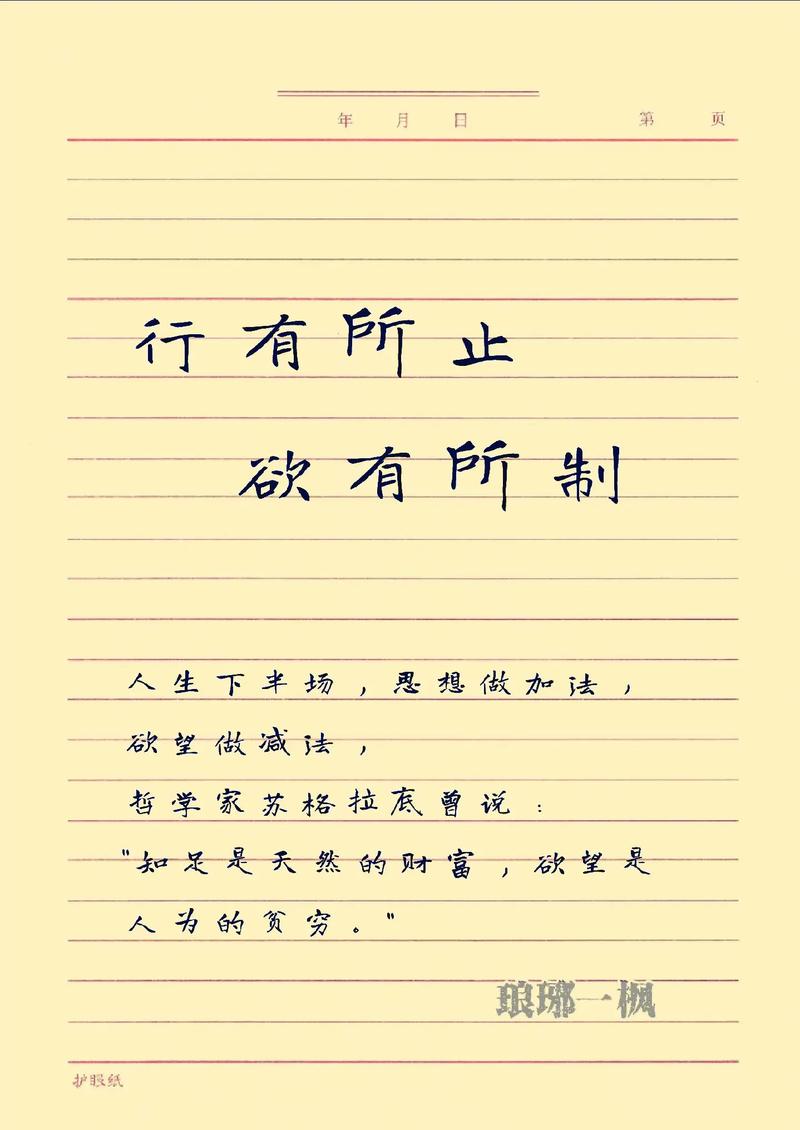 年 月 日 第 页
行有所止
欲有所制
人生下半场，思想做加法，
欲望做减法，
哲学家苏格拉底曾说：
"知足是天然的财富，欲望是
人为的贫穷。"
琅琊一枫
护眼纸